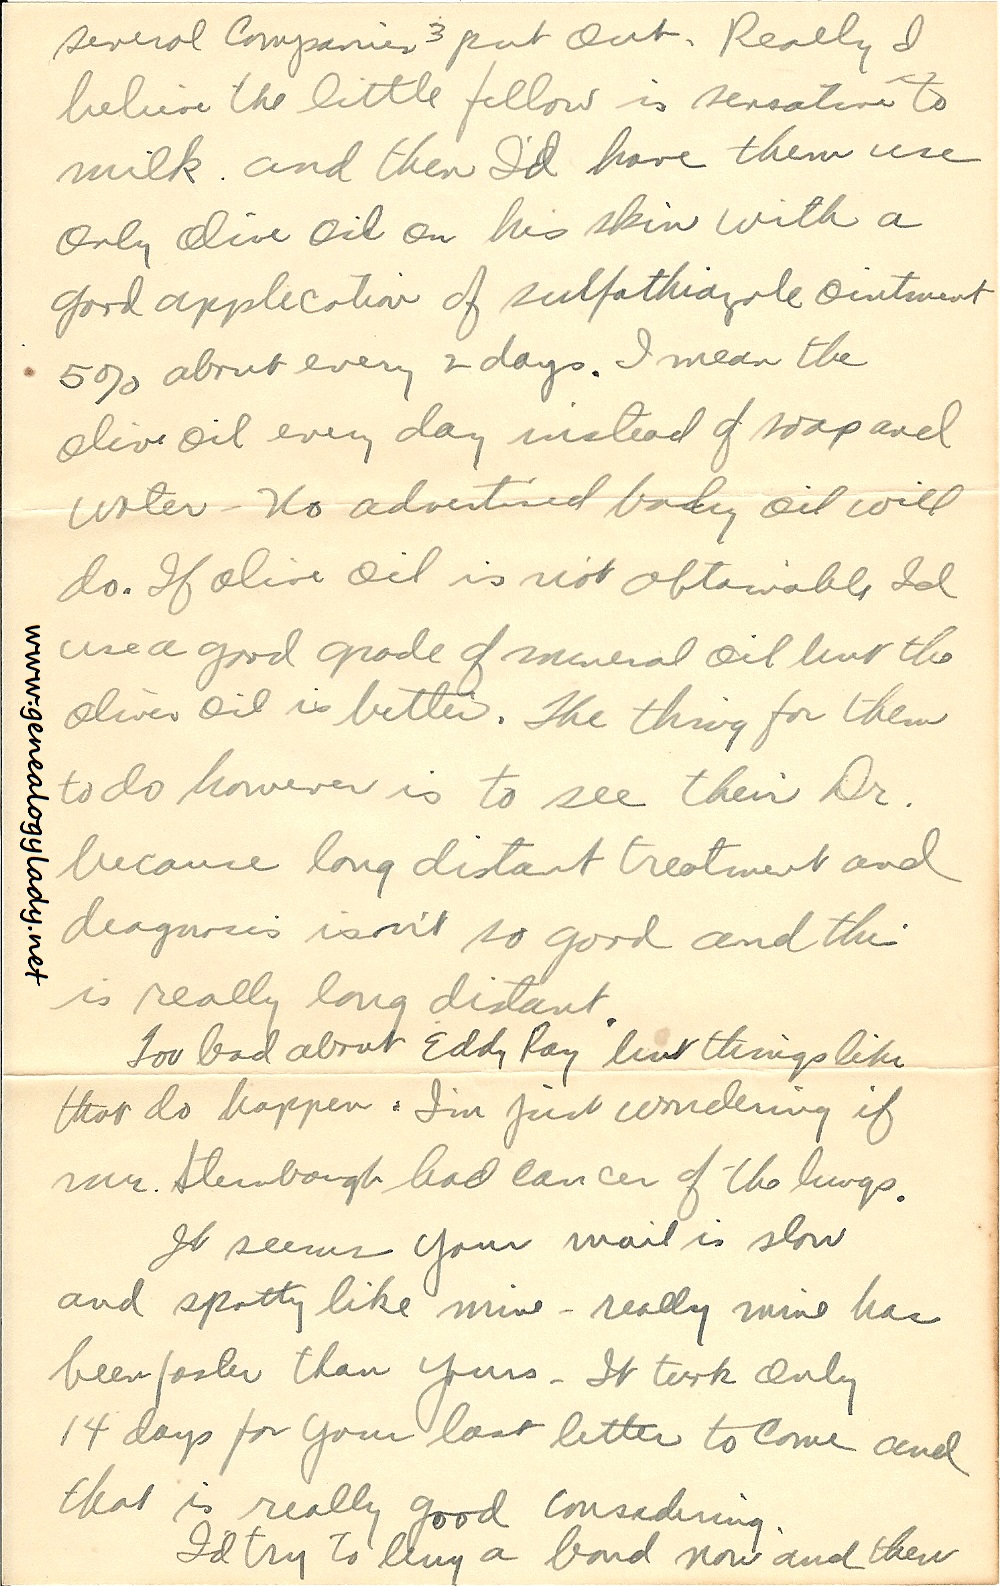 several Companies 3 put out. Really I
believe the little fellow is sensative to
milk. and then I'd have them use
only olive oil on his skin with a
good applecation of sulfathiazole ointment
5% about every 2 days. I mean the
olive oil every day instead of soap and
water - No advertised body oil will
do. If olive oil is not obtainable, Id
use a good grade of mineral oil but the
olive oil is better. The thing for them
to do however is to see their Dr.
because long distant treatment and
deagnosis isn't so good and this
is really long distant.
Too bad about Eddy Ray but things like
that do happen. I'm just wondering if
mr. had cancer of the lungs.
It seems your mail is slow
and spotty like mine - really mine has
been faster than yours - It took only
14 days for your last letter to come and
that is really good consadering.
I'd try to buy a bond now and then
www.genealogylady.net